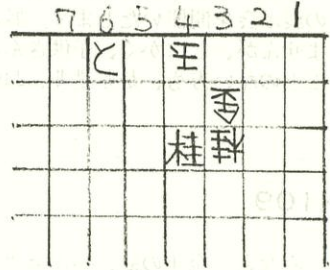 7 6 5 4 3 2 1
と 玉
香
桂